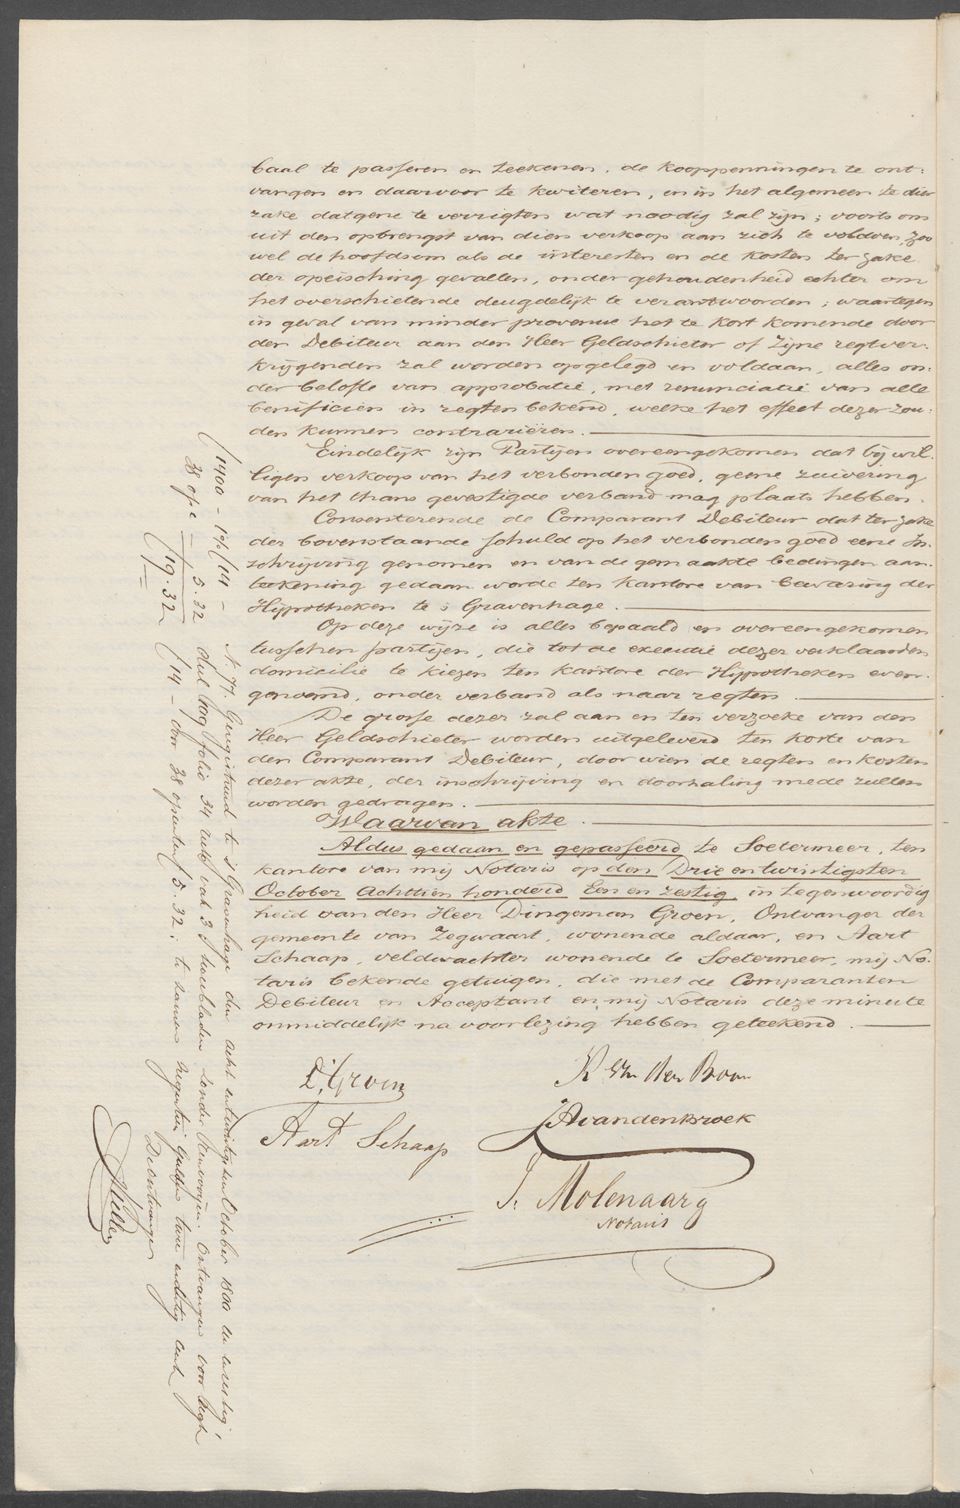 baal te passeren en teekenen, de kooppenningen te ont:
vangen en daarvoor te kwiteren, en in het algemeen te dier
zake datgene te verrigten wat noodig zal zijn; voorts om
uit den opbrengst van dien verkoop aan zich te voldoen, zoo
wel de hoofdsom als de interesten en de kosten ter zake
der opeisching gevallen, onder gehoudenheid echter om
het overschietende deugdelijk te verantwoorden; waartegen
in geval van minder provenue het te kort komende door
den Debiteur aan den Heer Geldschieter of Zijne regtver:
krijgenden zal worden opgelegd en voldaan, alles on:
der belofte van approbatie, met renunciatie van alle
benificien in regten bekend, welke het effect dezer zou:
den kunnen contrariëren.
Eindelijk zijn Partijen overeengekomen dat bij wil:
ligen verkoop van het verbonden goed, geene zuivering
van het thans gevestigde verband mag plaats hebben.
Consenterende de Comparant Debiteur dat ter zake
der bovenstaande schuld op het verbonden goed eene In:
schrijving genomen en van de gemaakte bedingen aan:
teekening gedaan worde ten kantore van bewaring der
Hijpotheken te s Gravenhage.
Op deze wijze is alles bepaald en overeengekomen
tusschen partijen, die tot de executie dezer verklaarden
domicilie te kiezen ten kantore der Hijpotheken even:
genoemd, onder verband als naar regten.
De grosse dezer zal aan en ten verzoeke van den
Heer Geldschieter worden uitgeleverd ten koste van
den Comparant Debiteur, door wien de regten en kosten
dezer akte, der inschrijving en doorhaling mede zullen
worden gedragen.
Waarvan akte.
Aldus gedaan en gepasseerd te Soetermeer, ten
kantore van mij Notaris op den Drie en twintigsten
October Achttien honderd Een en zestig, in tegenwoordig
heid van den Heer Dingeman Groen, Ontvanger der
gemeente van Zegwaart, wonende aldaar, en Aart
Schaap, veldwachter wonende te Soetermeer, mij No:
taris bekende getuigen, die met de Comparanten
Debiteur en Acceptant en mij Notaris deze minute
onmiddelijk na voorlezing hebben geteekend.
D. Groen
Aart Schaap
Avandenbroek
J. Molenaar
Notaris
1400 - 1% f 14 -
38 opc - 5.32
f 19.32
N. 77. Geregistreerd te s' Gravenhage den acht en twintigsten October 1800 een en zestig
deel folio 34 vak 3 bladen zonder renvooijen. Ontvangen voor regt
f 14 - voor 38 opcenten f 5.32; te zamen negentien Gulden twee en dertig cent
De Ontvanger